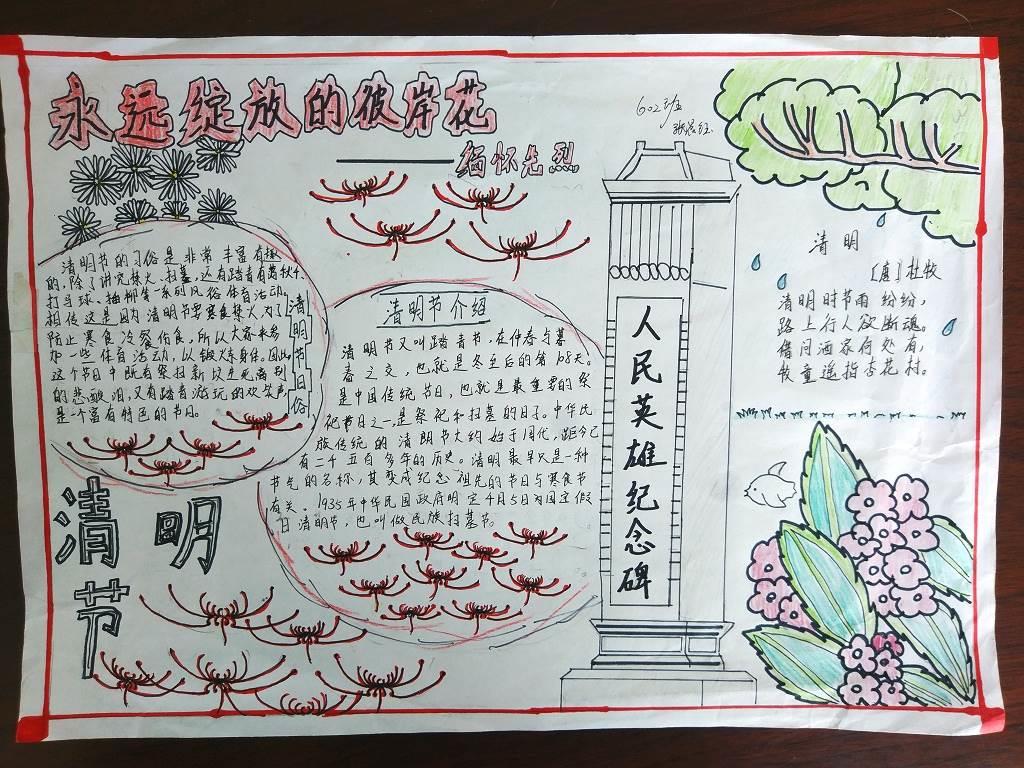 永远绽放的彼岸花
——缅怀先烈
602班
清明节的习俗是非常丰富有趣
的,除了讲究禁火、扫墓,还有踏青、荡秋千、
打马球、插柳等一系列风俗体育活动。
相传这是因为清明节要寒食禁火,为了
防止寒食冷餐伤身,所以大家来参
加一些体育活动,以锻炼身体。因此,
这个节日中既有祭扫新坟生死离别
的悲酸泪,又有踏青游玩的欢笑声,
是一个富有特色的节日。
清明节日俗
清明节介绍
清明节又叫踏青节,在仲春与暮
春之交,也就是冬至后的第108天。
是中国传统节日,也就是最重要的祭
祀节日之一,是祭祀和扫墓的日子。中华民
族传统的清明节大约始于周代,距今已
有二千五百多年的历史。清明最早只是一种
节气的名称,其变成纪念祖先的节日与寒食节
有关。1935年中华民国政府明定4月5日为国定假
日清明节,也叫做民族扫墓节。
清明
节
人民英雄纪念碑
清明
[唐]杜牧
清明时节雨纷纷,
路上行人欲断魂。
借问酒家何处有,
牧童遥指杏花村。